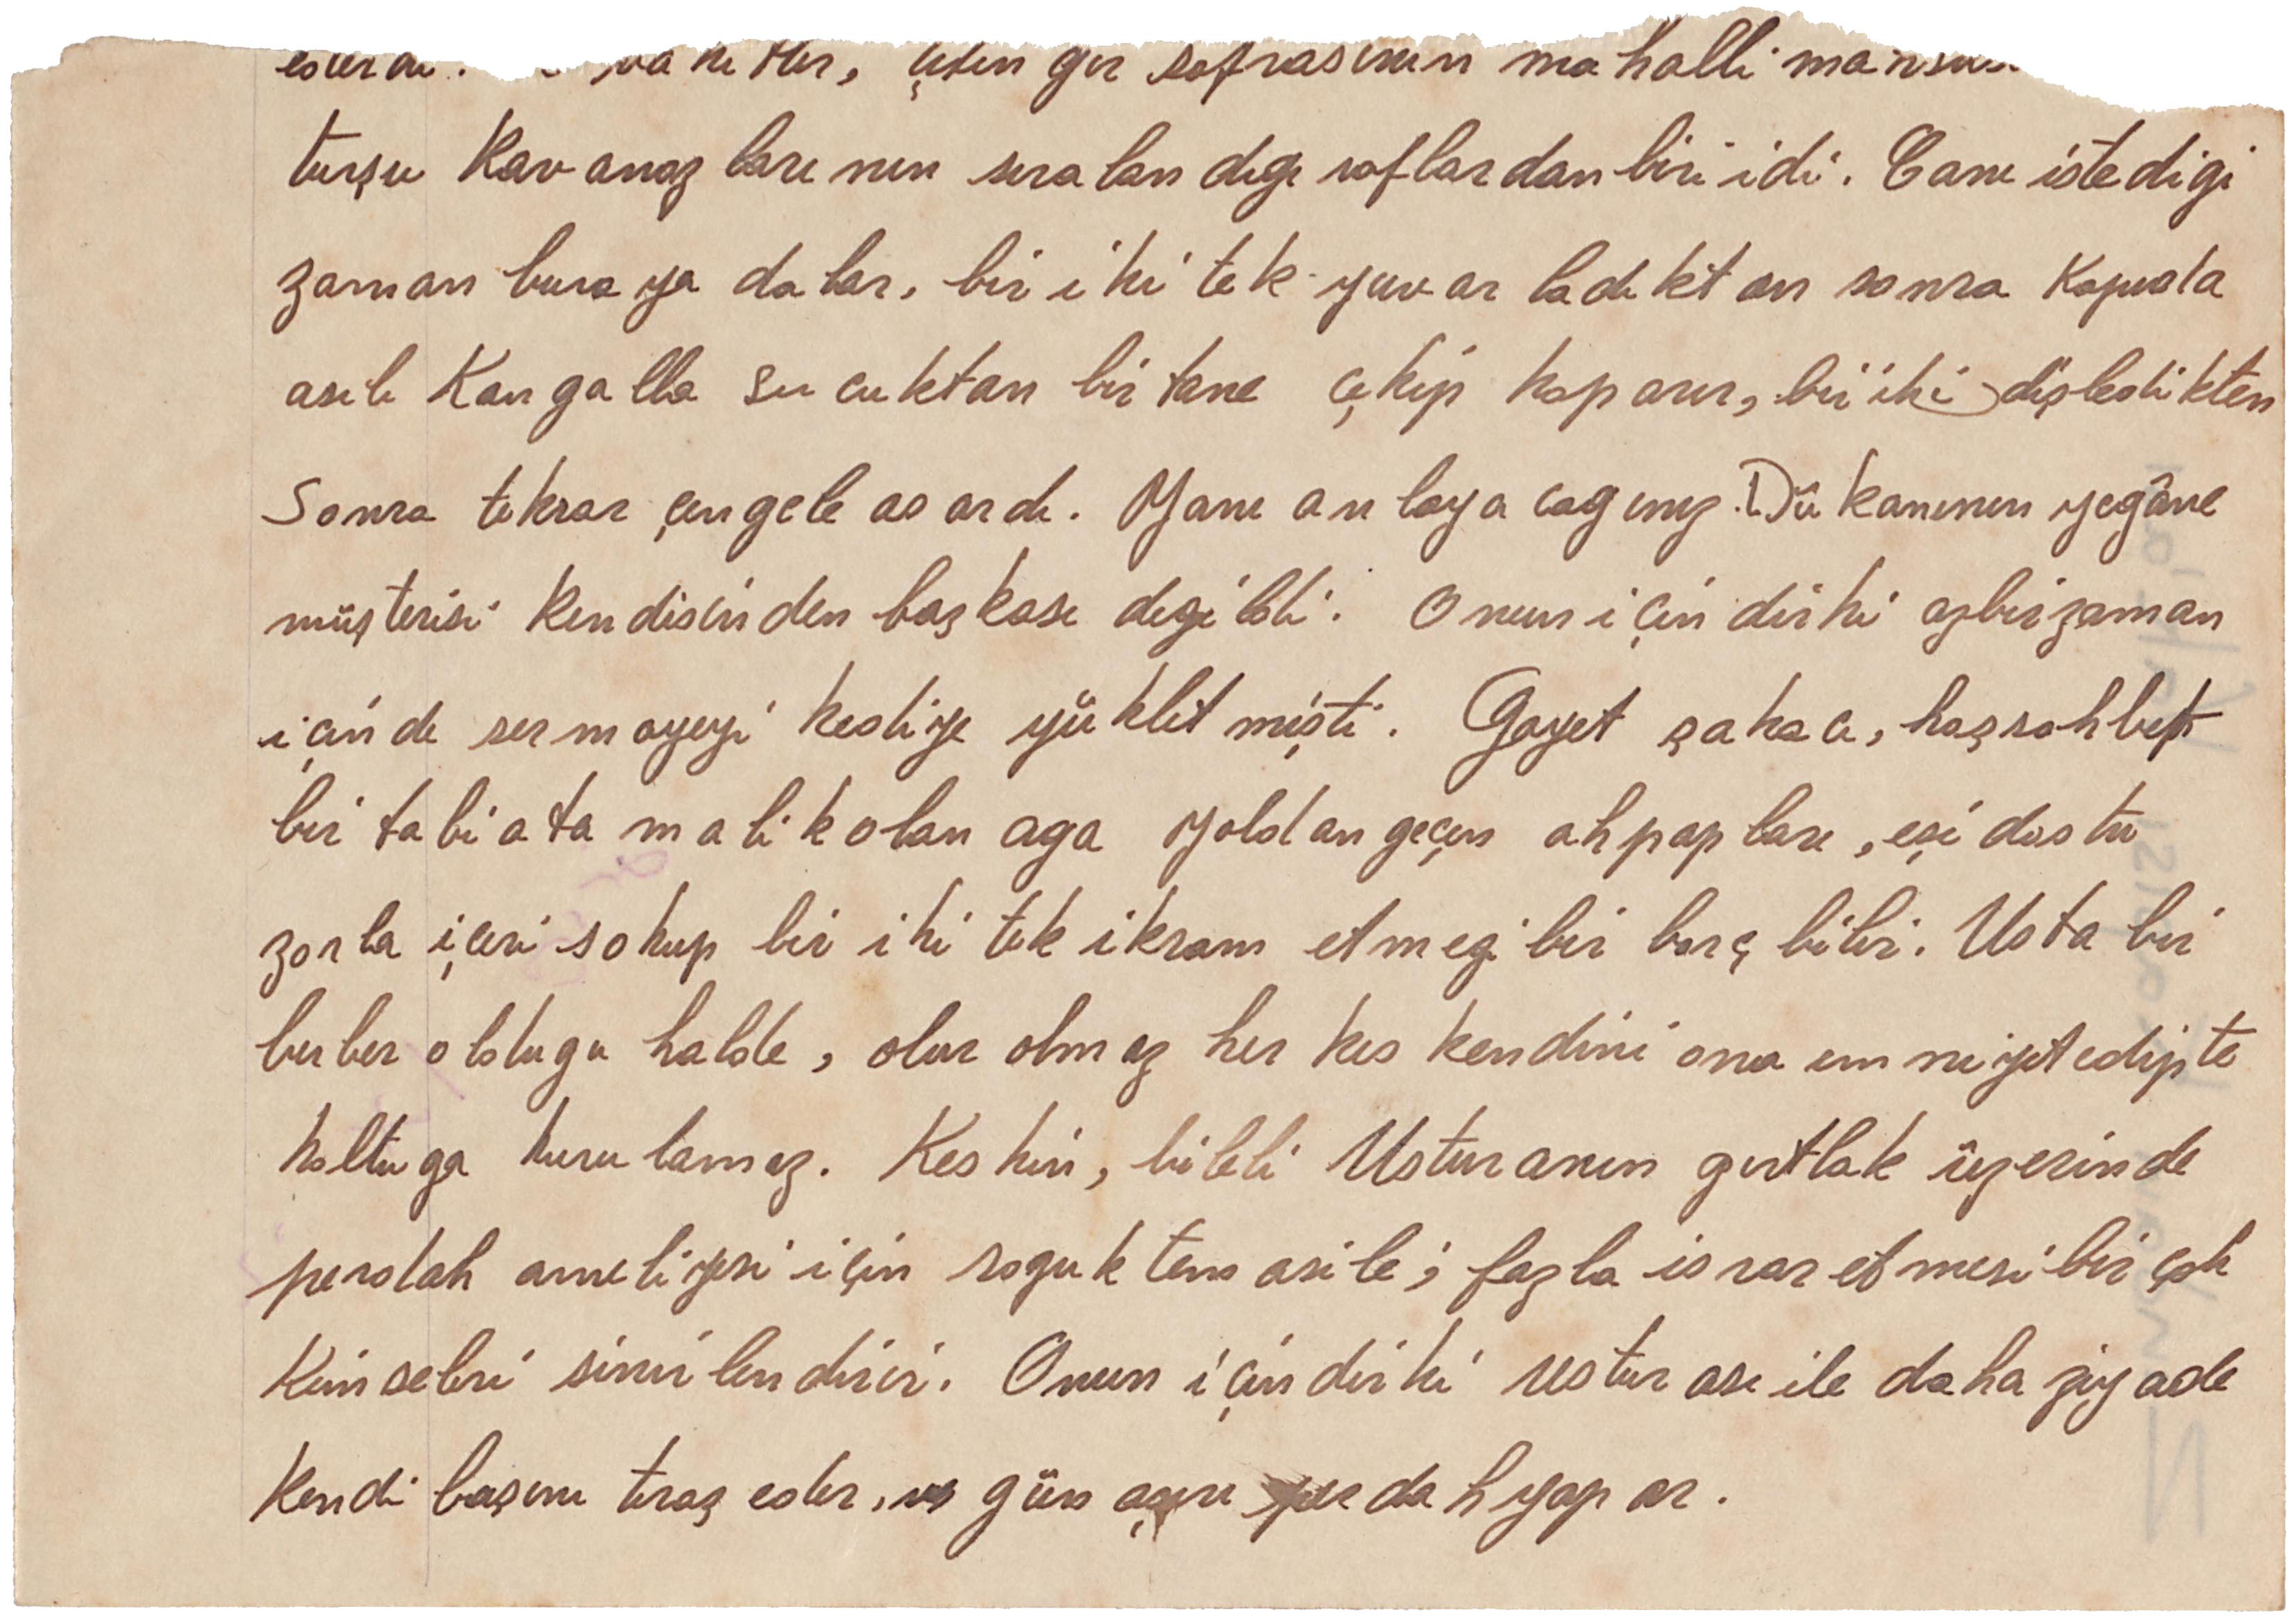 sofrasının mahalli
turşu Kavanozlarının sıralandığı raflardan biri idi. Canı istedigi
zaman buraya dalar, bir iki tek yuvarladıktan sonra Kapuda
asılı Kangalla sucuktan bir tane çekip koparır, bir iki dişledikten
Sonra tekrar çengele asardı. Yani anlayacagınız. Dükanının yegâne
müşterisi Kendisinden başkası degildi. Onun içindirki azbirzaman
içinde sermayeyi kediye yükletmişti. Gayet şakacı, hoşsohbet
bir tabiata malik olan aga Yoldan geçen ahpapları, eşi dostu
zorla içeri sokup bir iki tek ikram etmegi bir borç bilir. Usta bir
berber oldugu halde, olur olmaz her kes kendini ona emniyet edipte
koltuga kurulamaz. Keskin, bileli Usturanın gırtlak üzerinde
perdah ameliyesi için soguk temasile; fazla israr etmesi bir çok
Kimseleri sinirlendirir. Onun içindirki usturası ile daha ziyade
Kendi başını tıraş eder, gün aşırı perdah yapar.